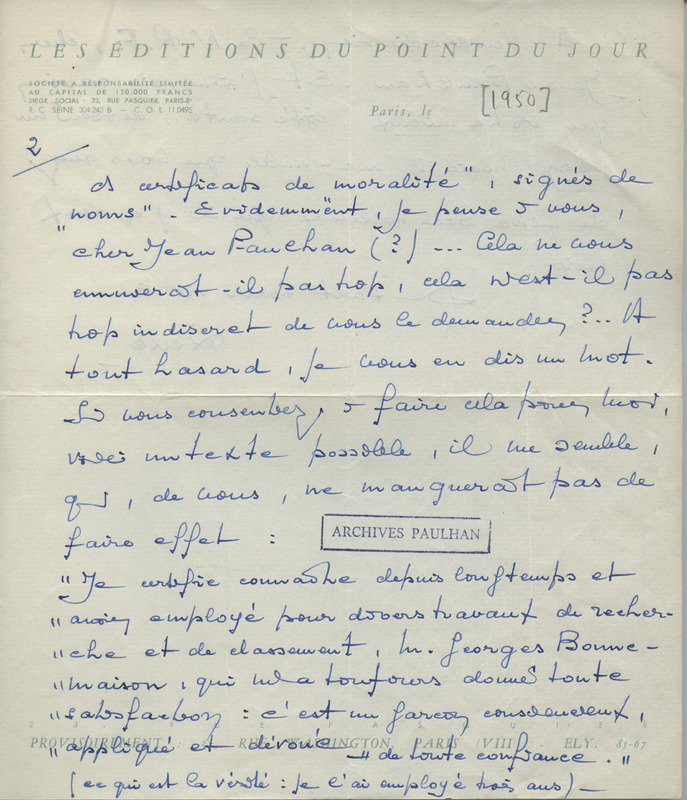 LES ÉDITIONS DU POINT DU JOUR
SOCIÉTÉ A RESPONSABILITÉ LIMITÉE
AU CAPITAL DE 120.000 FRANCS
SIÈGE SOCIAL : 23, RUE PASQUIER, PARIS-8e
R. C. SEINE 304240 B — C. O. L. 11.0495
Paris, le [1950]
2
ds certificats de moralité", signés de
"noms" - Evidemment, je pense à vous,
cher Jean Paulhan (?) ... Cela ne vous
ennuierait-il pas trop, cela n'est-il pas
trop indiscret de vous le demander ?.. A
tout hasard, je vous en dis un mot.
Si vous consentez, à faire cela pour moi,
voici un texte possible, il me semble,
qui, de vous, ne manquerait pas de
faire effet :
ARCHIVES PAULHAN
"Je certifie connaître depuis longtemps et
"avoir employé pour divers travaux de recher-
"che et de classement, M. Georges Bonne-
"maison, qui m'a toujours donné toute
"satisfaction : c'est un garçon consciencieux,
"appliqué et dévoué — "de toute confiance."
PROVISOIREMENT : RUE WASHINGTON, PARIS (VIII) - ELY. 85-07
(ce qui est la vérité : je l'ai employé trois ans) —